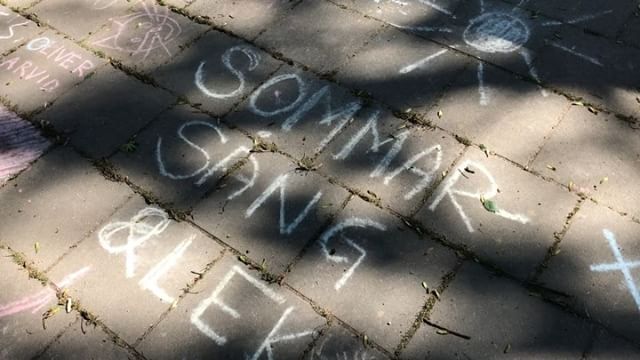 OLIVER
ARVID
SOMMAR
SÅNG
& LEK